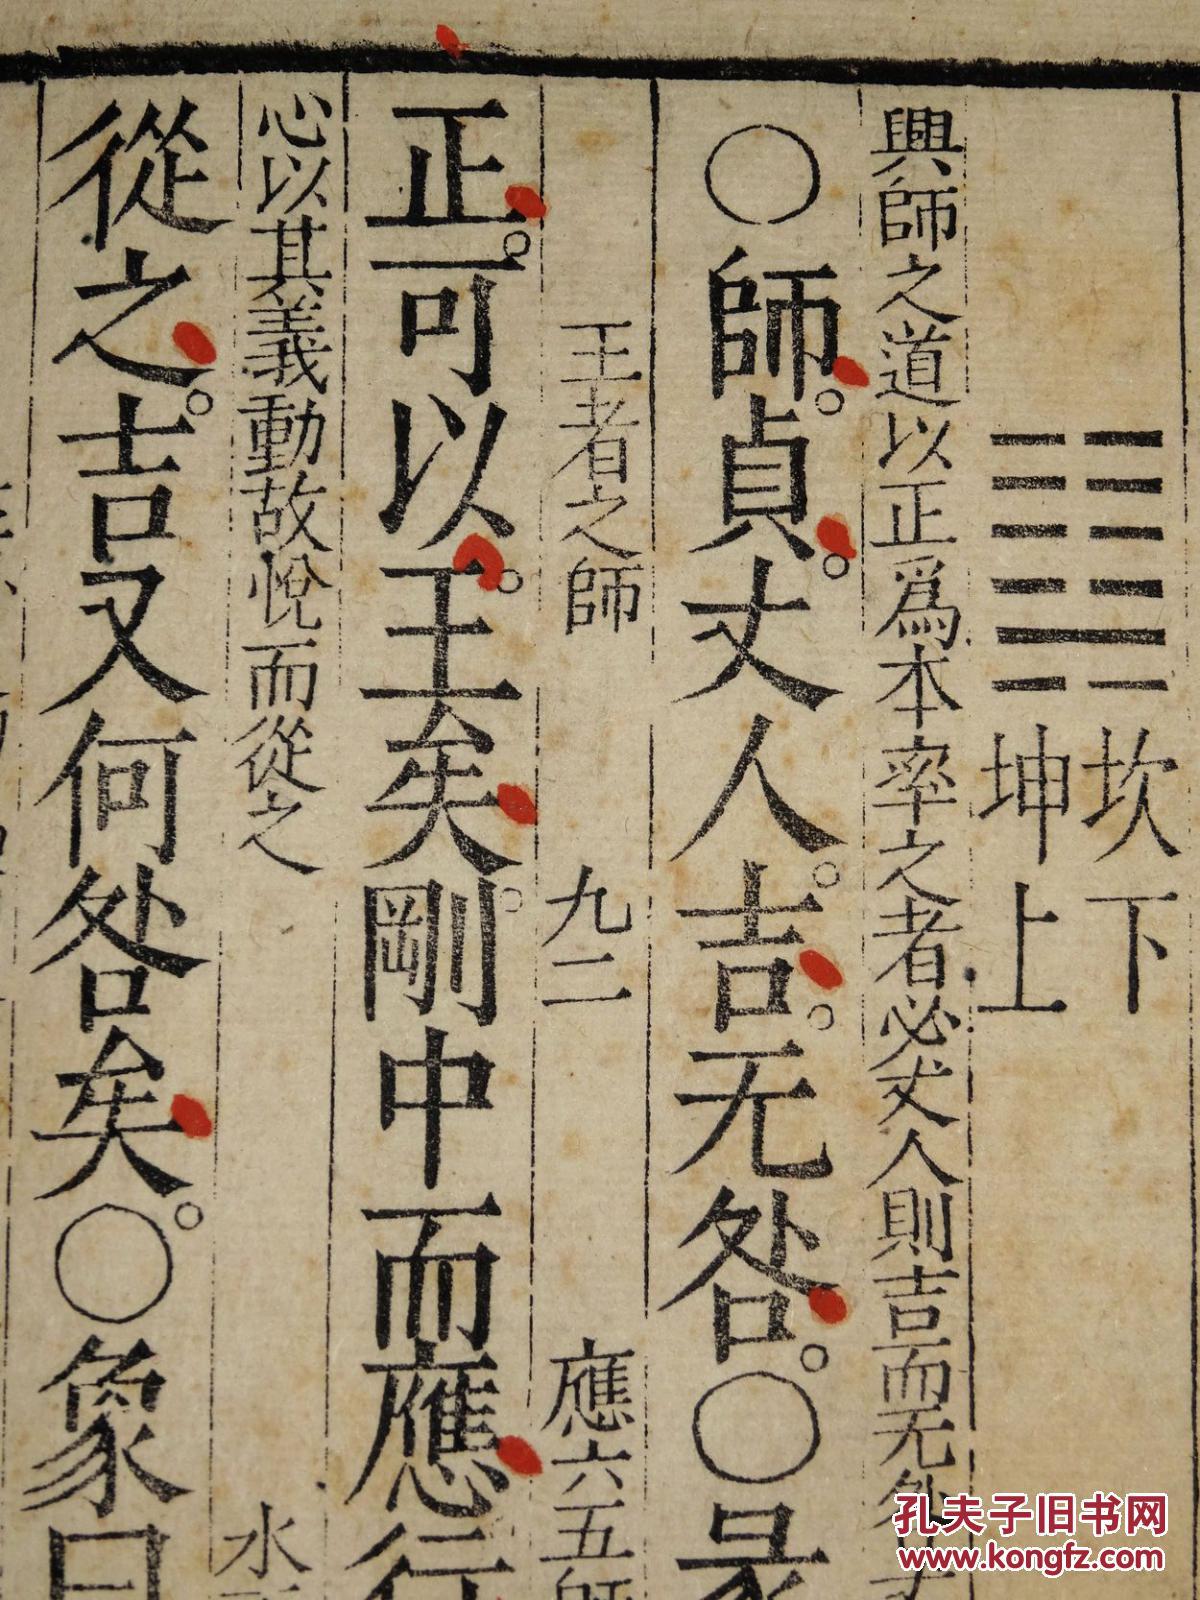 坎下
坤上
興師之道以正爲本率之者必丈人則吉而无咎
〇師。貞。丈人。吉。无咎。〇彖
王者之師 九二 應六五師
正。可以。王矣。剛中而應行
心以其義動故悅而從之 水
從之。吉又何咎矣。〇象曰
孔夫子旧书网
www.kongfz.com